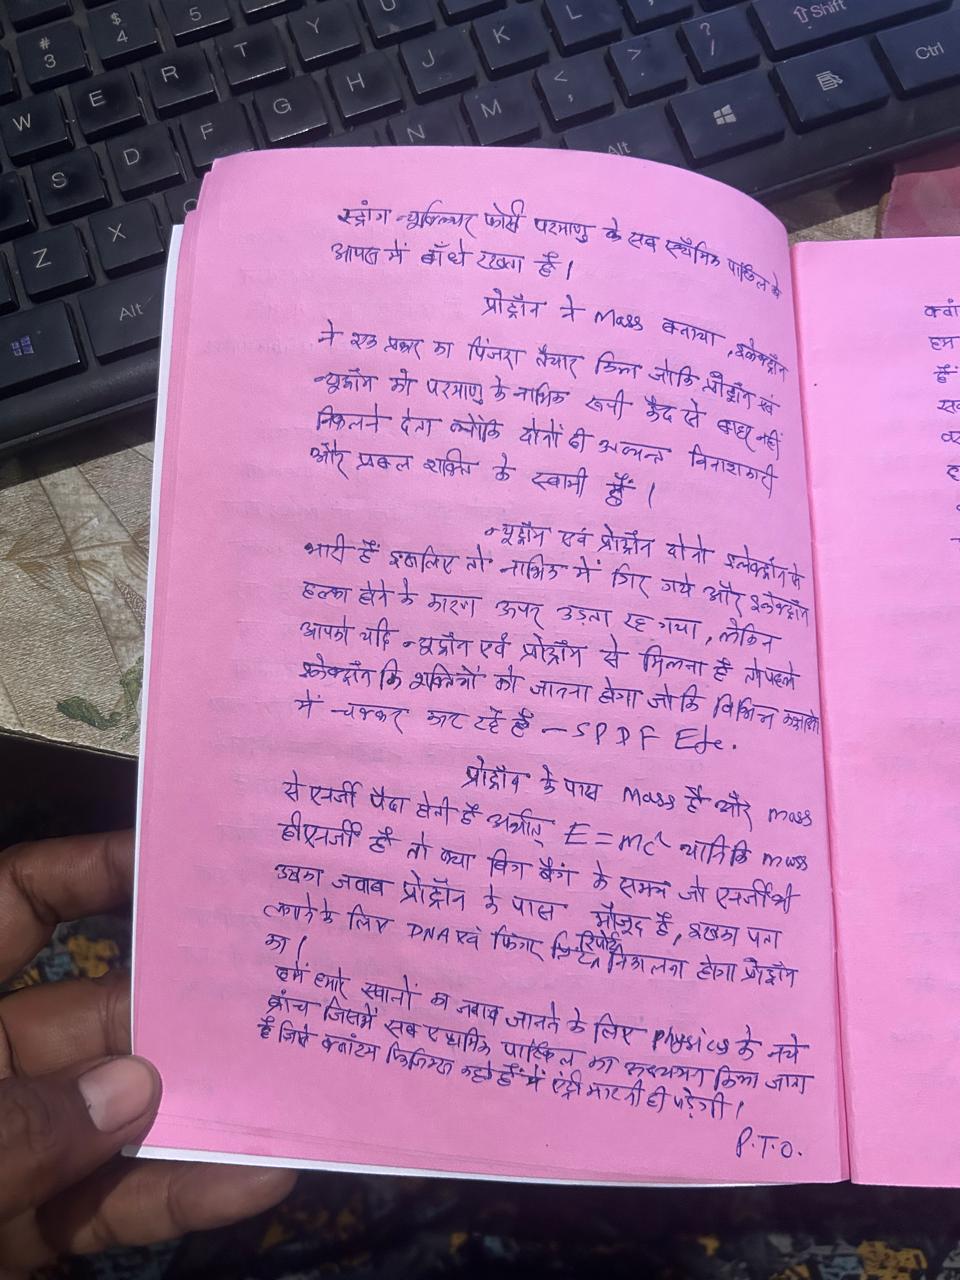 # 3
$ 4
5
T
Y
U
J
K
L
? /
⇧ Shift
Ctrl
W
E
R
G
H
N
M
< ,
> .
Alt
S
D
F
Z
X
Alt
स्ट्रांग न्यूक्लियर फोर्स परमाणु के सब एटॉमिक पार्टिकल को
आपस में बाँधे रखता है।
प्रोट्रॉन ने Mass बनाया, इलेक्ट्रॉन
ने एक प्रकार का पिंजरा तैयार किया जोकि प्रोट्रॉन एवं
न्यूट्रॉन को परमाणु के नाभिक रूपी कैद से बाहर नहीं
निकलने देता क्योंकि दोनों ही अत्यन्त विनाशकारी
और प्रबल शक्ति के स्वामी हैं।
न्यूट्रॉन एवं प्रोट्रॉन दोनो इलेक्ट्रॉन से
भारी हैं इसलिए तो नाभिक में गिर गये और इलेक्ट्रॉन
हल्का होने के कारण ऊपर उड़ता रह गया, लेकिन
आपको यदि न्यूट्रॉन एवं प्रोट्रॉन से मिलना है तो पहले
इलेक्ट्रॉन कि शक्तियों को जानना होगा जोकि विभिन्न कक्षाओं
में चक्कर काट रहे हैं – S P D F Etc.
प्रोट्रॉन के पास Mass है और mass
से एनर्जी पैदा होती है अर्थात् E = mc² यानि कि mass
ही एनर्जी है तो क्या बिग बैंग के समय जो एनर्जी थी
उसका जवाब प्रोट्रॉन के पास मौजूद है, इसका पता
लगाने के लिए DNA एवं फिंगर प्रिन्ट रिपोर्ट निकालना होगा प्रोट्रॉन
का।
हमें हमारे सवालों का जवाब जानने के लिए physics के नये
ब्रांच जिसमें सब एटॉमिक पार्टिकल का अध्ययन किया जाता
है जिसे क्वांटम फिजिक्स कहते हैं में एंट्री मारनी ही पड़ेगी।
P.T.O.
क्वां
हम
हैं